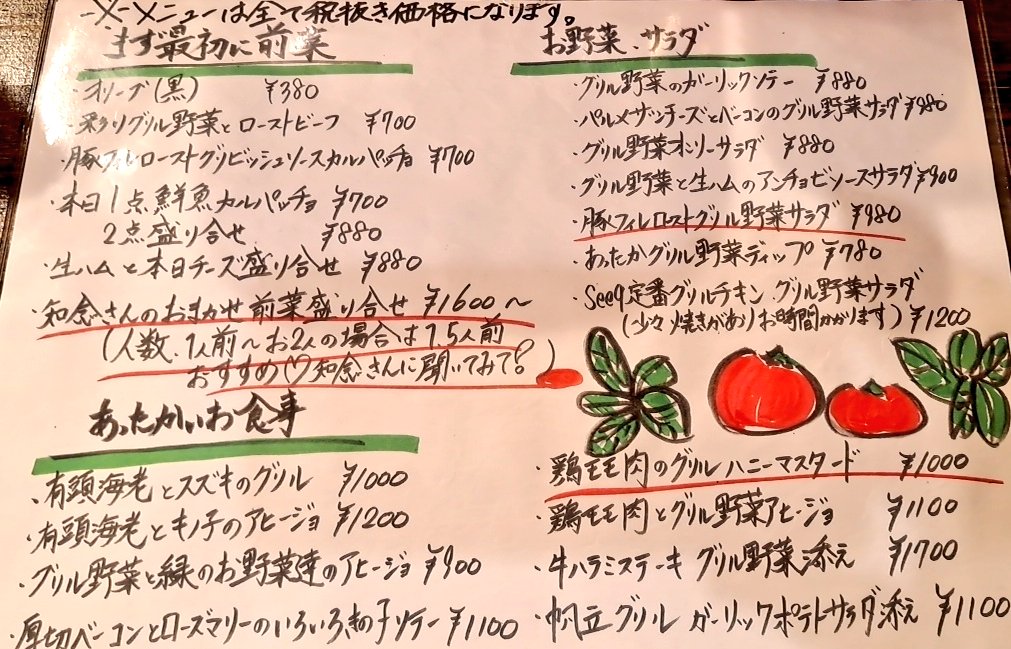 -×-メニューは全て税抜き価格になります。
まず最初に前菜
・オリーブ(黒) ¥380
・彩りグリル野菜とローストビーフ ¥700
・豚フィレローストグリビッシュソースカルパッチョ ¥700
・本日1点鮮魚カルパッチョ ¥700
2点盛り合せ ¥880
・生ハムと本日チーズ盛り合せ ¥880
・知念さんのおまかせ前菜盛り合せ ¥1600～
(人数、1人前～お2人の場合は1.5人前
おすすめ♡知念さんに聞いてみて?)
お野菜、サラダ
・グリル野菜のガーリックソテー ¥880
・パルメザンチーズとベーコンのグリル野菜サラダ ¥980
・グリル野菜オンリーサラダ ¥880
・グリル野菜と生ハムのアンチョビソースサラダ ¥900
・豚フィレローストグリル野菜サラダ ¥980
・あったかグリル野菜ディップ ¥780
・See9定番グリルチキン、グリル野菜サラダ
(少々焼きがありお時間かかります) ¥1200
あったかいお食事
・有頭海老とスズキのグリル ¥1000
・有頭海老とキノ子のアヒージョ ¥1200
・グリル野菜と緑のお野菜達のアヒージョ ¥900
・厚切ベーコンとローズマリーのいろいろきの子ソテー ¥1100
・鶏モモ肉のグリル ハニーマスタード ¥1000
・鶏モモ肉とグリル野菜アヒージョ ¥1100
・牛ハラミステーキ グリル野菜添え ¥1700
・帆立グリル ガーリックポテトサラダ添え ¥1100